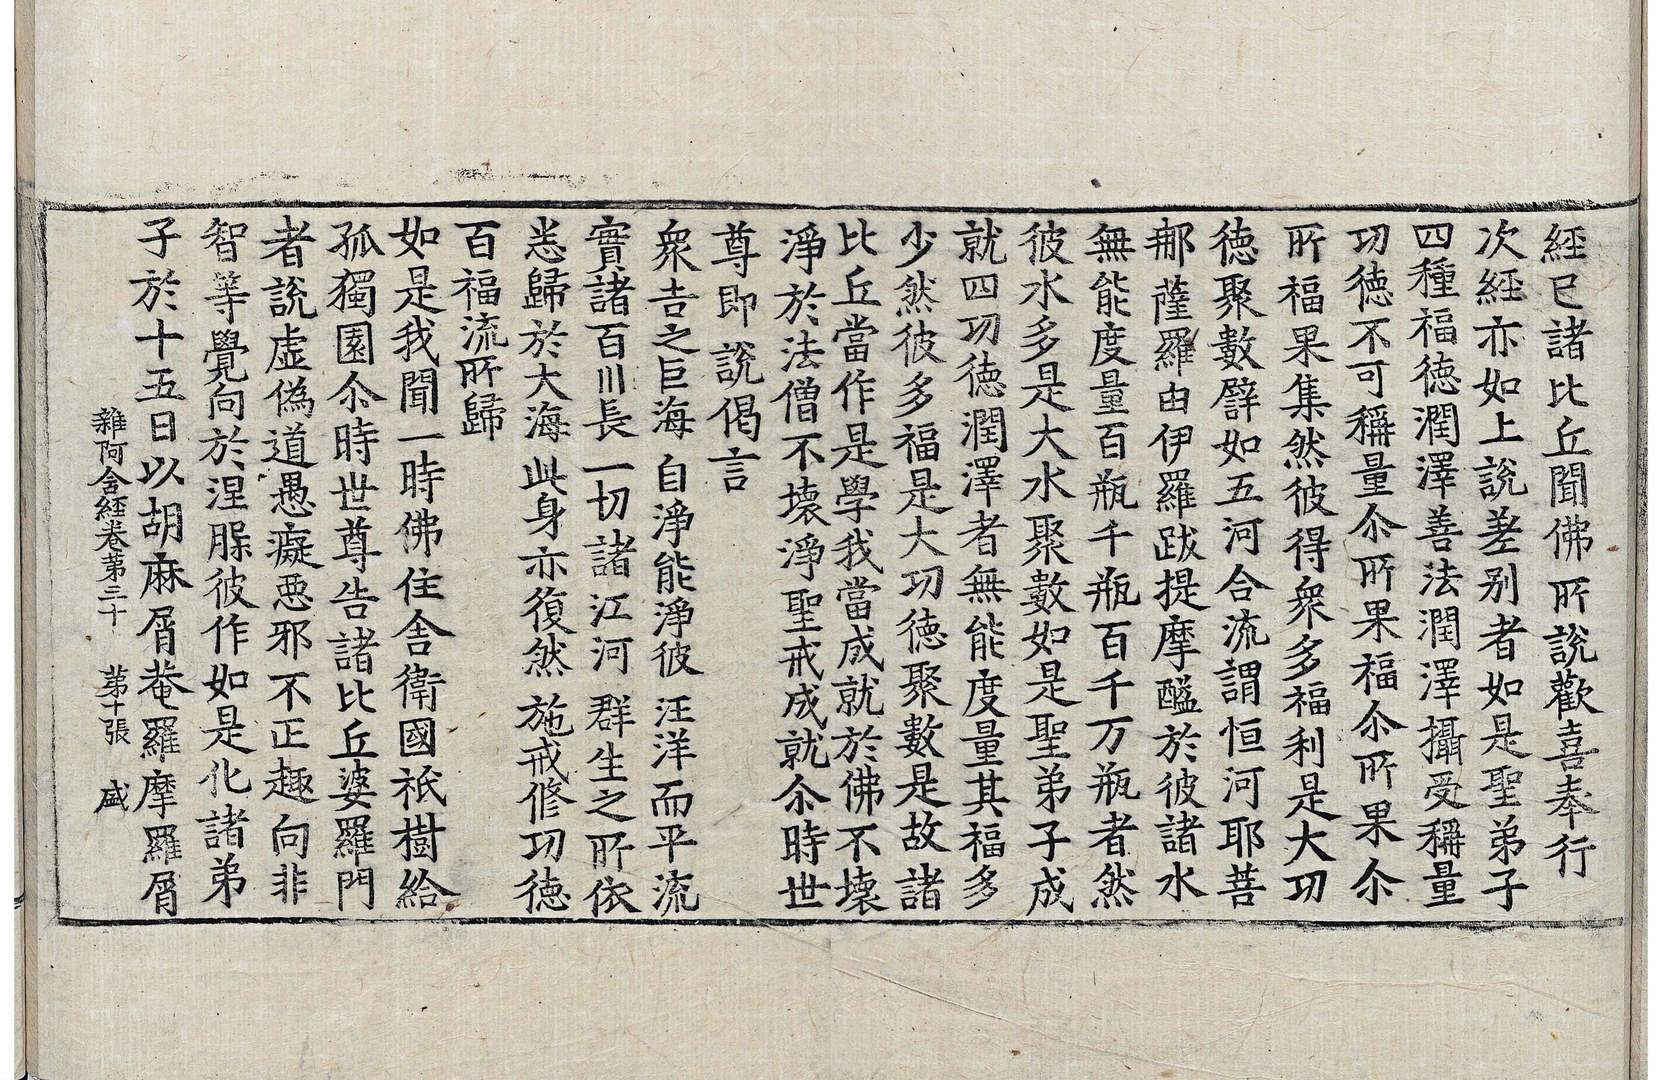 經已諸比丘聞佛所說歡喜奉行
次經亦如上說差別者如是聖弟子
四種福德潤澤善法潤澤攝受稱量
功德不可稱量尒所果福尒所果尒
所福果集然彼得衆多福利是大功
德聚數譬如五河合流謂恒河耶菩
那薩羅由伊羅跋提摩醯於彼諸水
無能度量百瓶千瓶百千万瓶者然
彼水多是大水聚數如是聖弟子成
就四功德潤澤者無能度量其福多
少然彼多福是大功德聚數是故諸
比丘當作是學我當成就於佛不壞
淨於法僧不壞淨聖戒成就尒時世
尊即說偈言
衆吉之巨海 自淨能淨彼 汪洋而平流
實諸百川長 一切諸江河 群生之所依
悉歸於大海 此身亦復然 施戒修功德
百福流所歸
如是我聞一時佛住舍衛國祇樹給
孤獨園尒時世尊告諸比丘婆羅門
者說虛偽道愚癡惡邪不正趣向非
智等覺向於涅脲彼作如是化諸弟
子於十五日以胡麻屑菴羅摩羅屑
雜阿含經卷第三十 第十張 盛